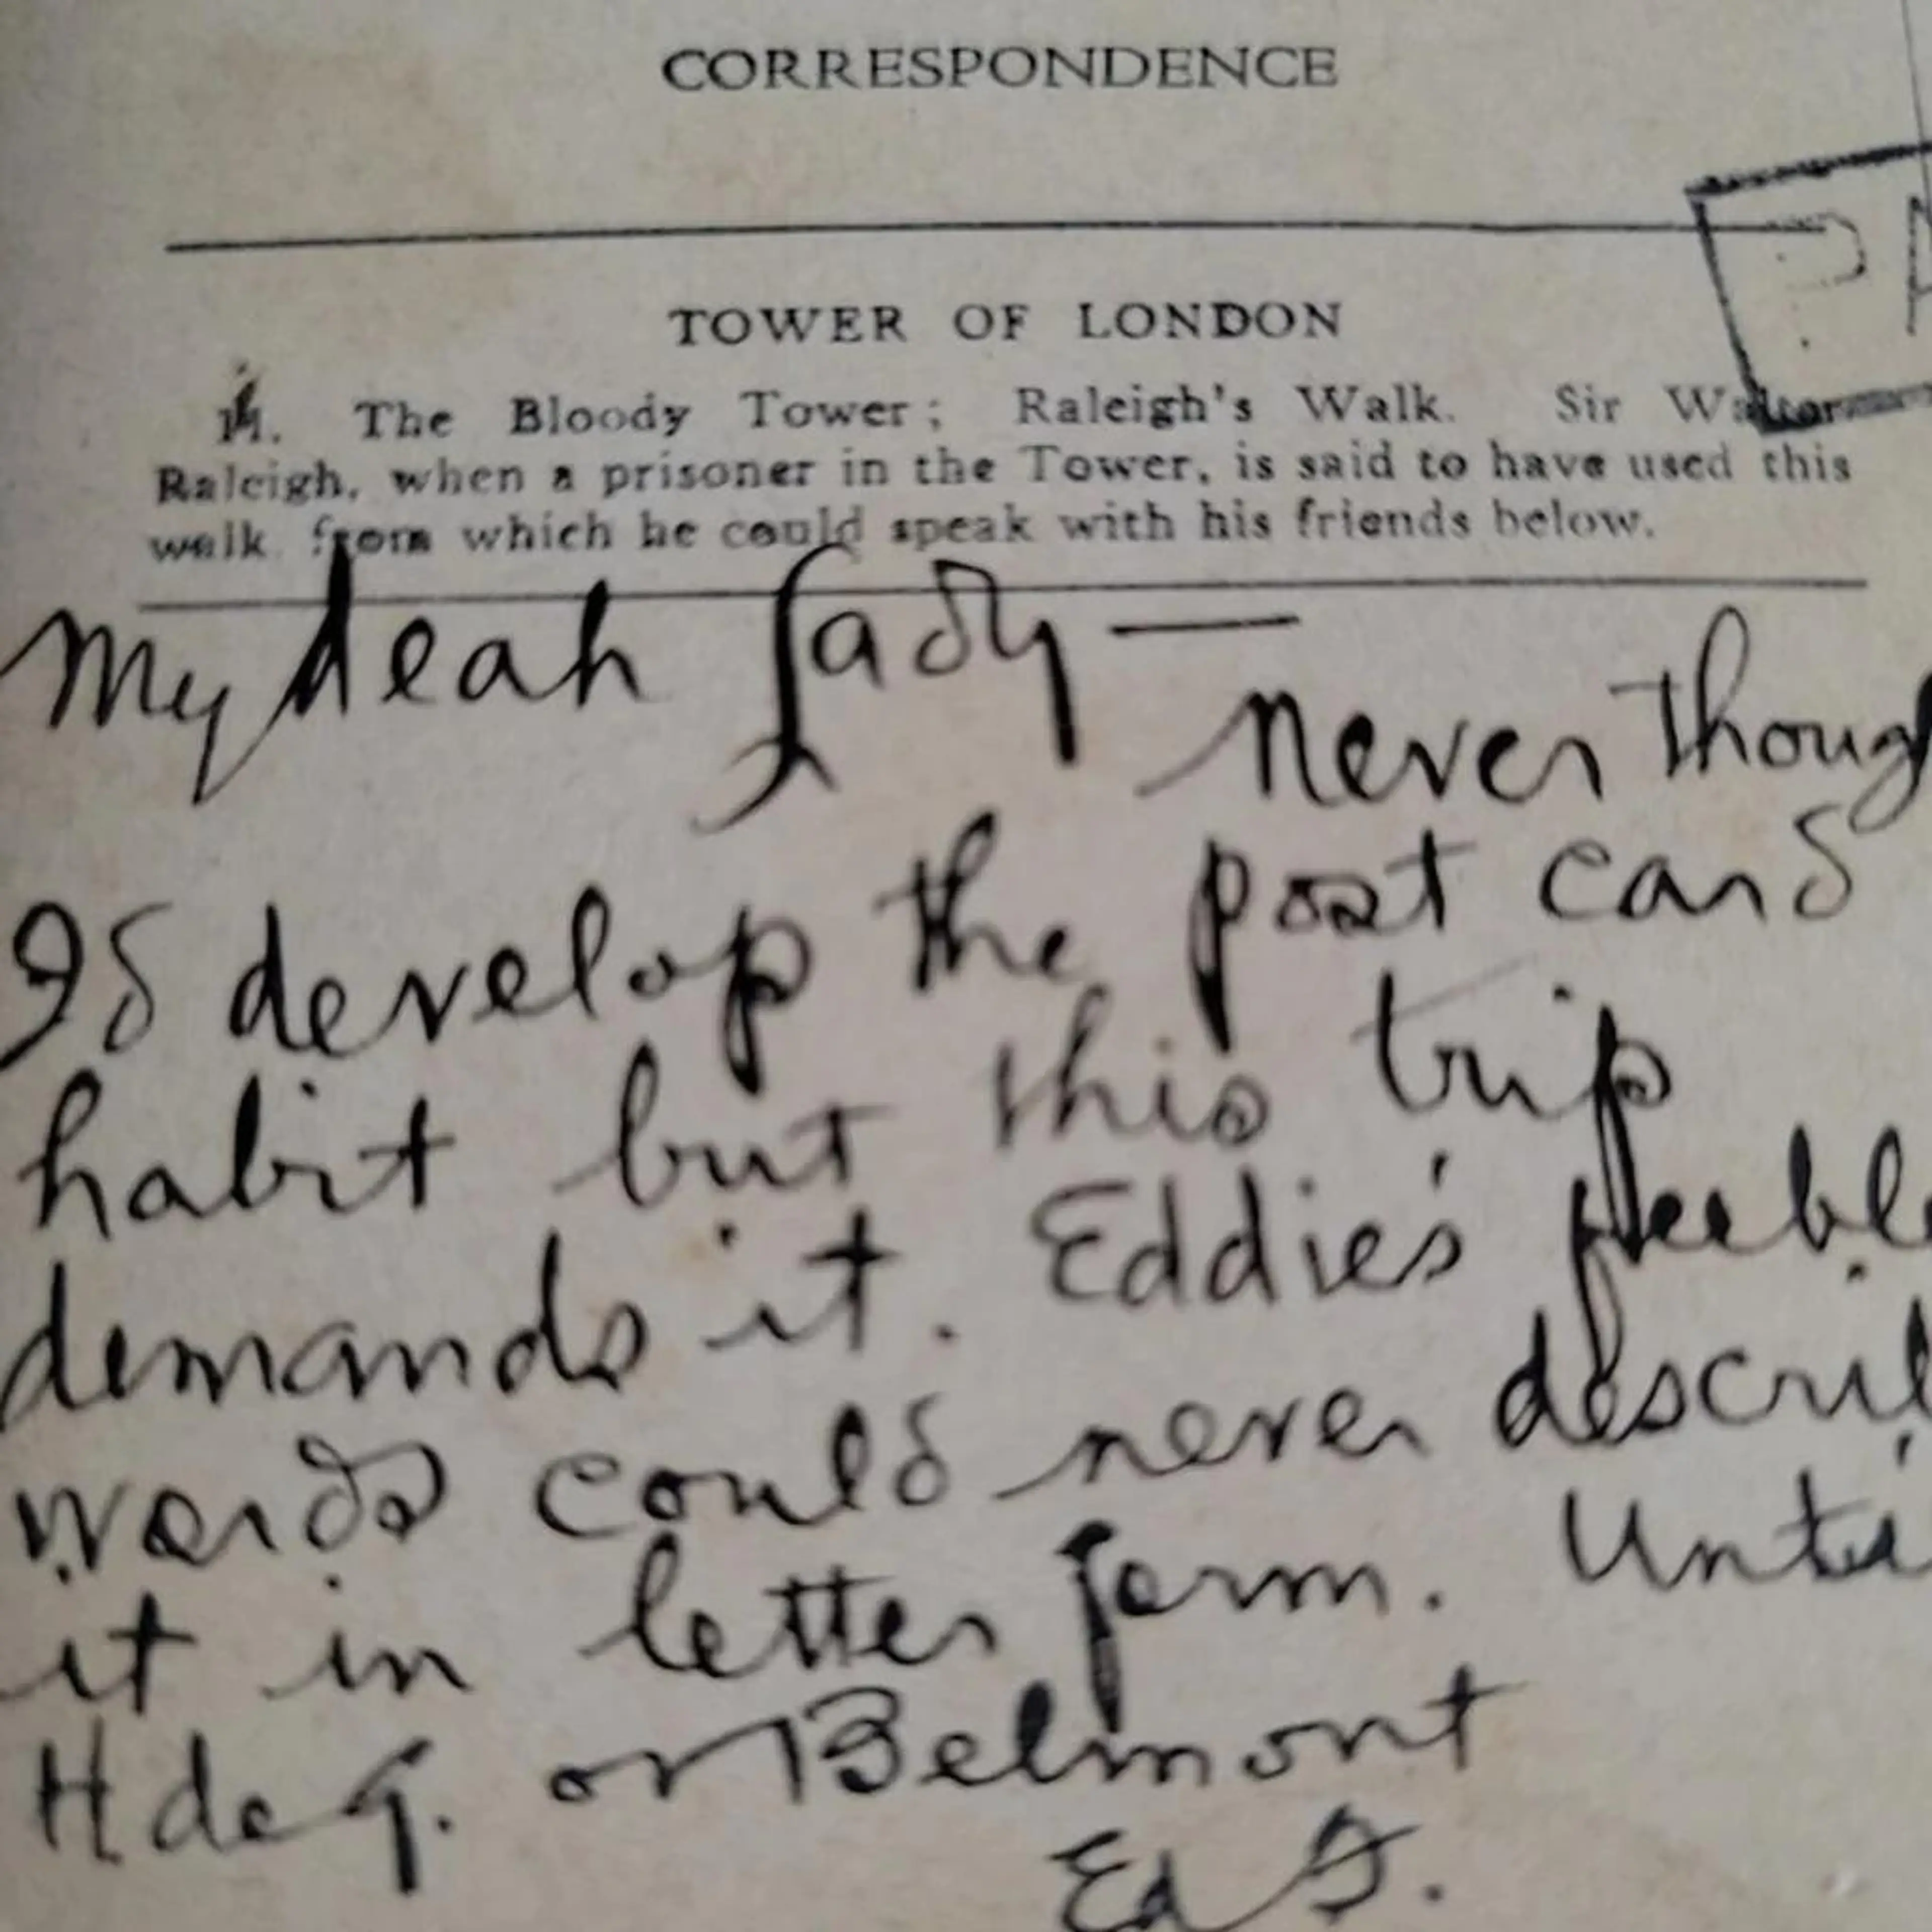 CORRESPONDENCE
TOWER OF LONDON
14. The Bloody Tower; Raleigh's Walk. Sir Walter
Raleigh, when a prisoner in the Tower, is said to have used this
walk from which he could speak with his friends below.
My deah Lady —
never thoug
I'd develop the post card
habit but this trip
demands it. Eddie's feeble
words could never describ
it in letter form. Until
H de G. or Belmont
Ed